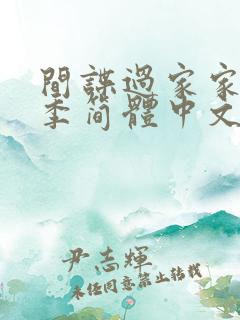 間諜過家家
季簡體中文
尹志輝
未任同意禁止转载